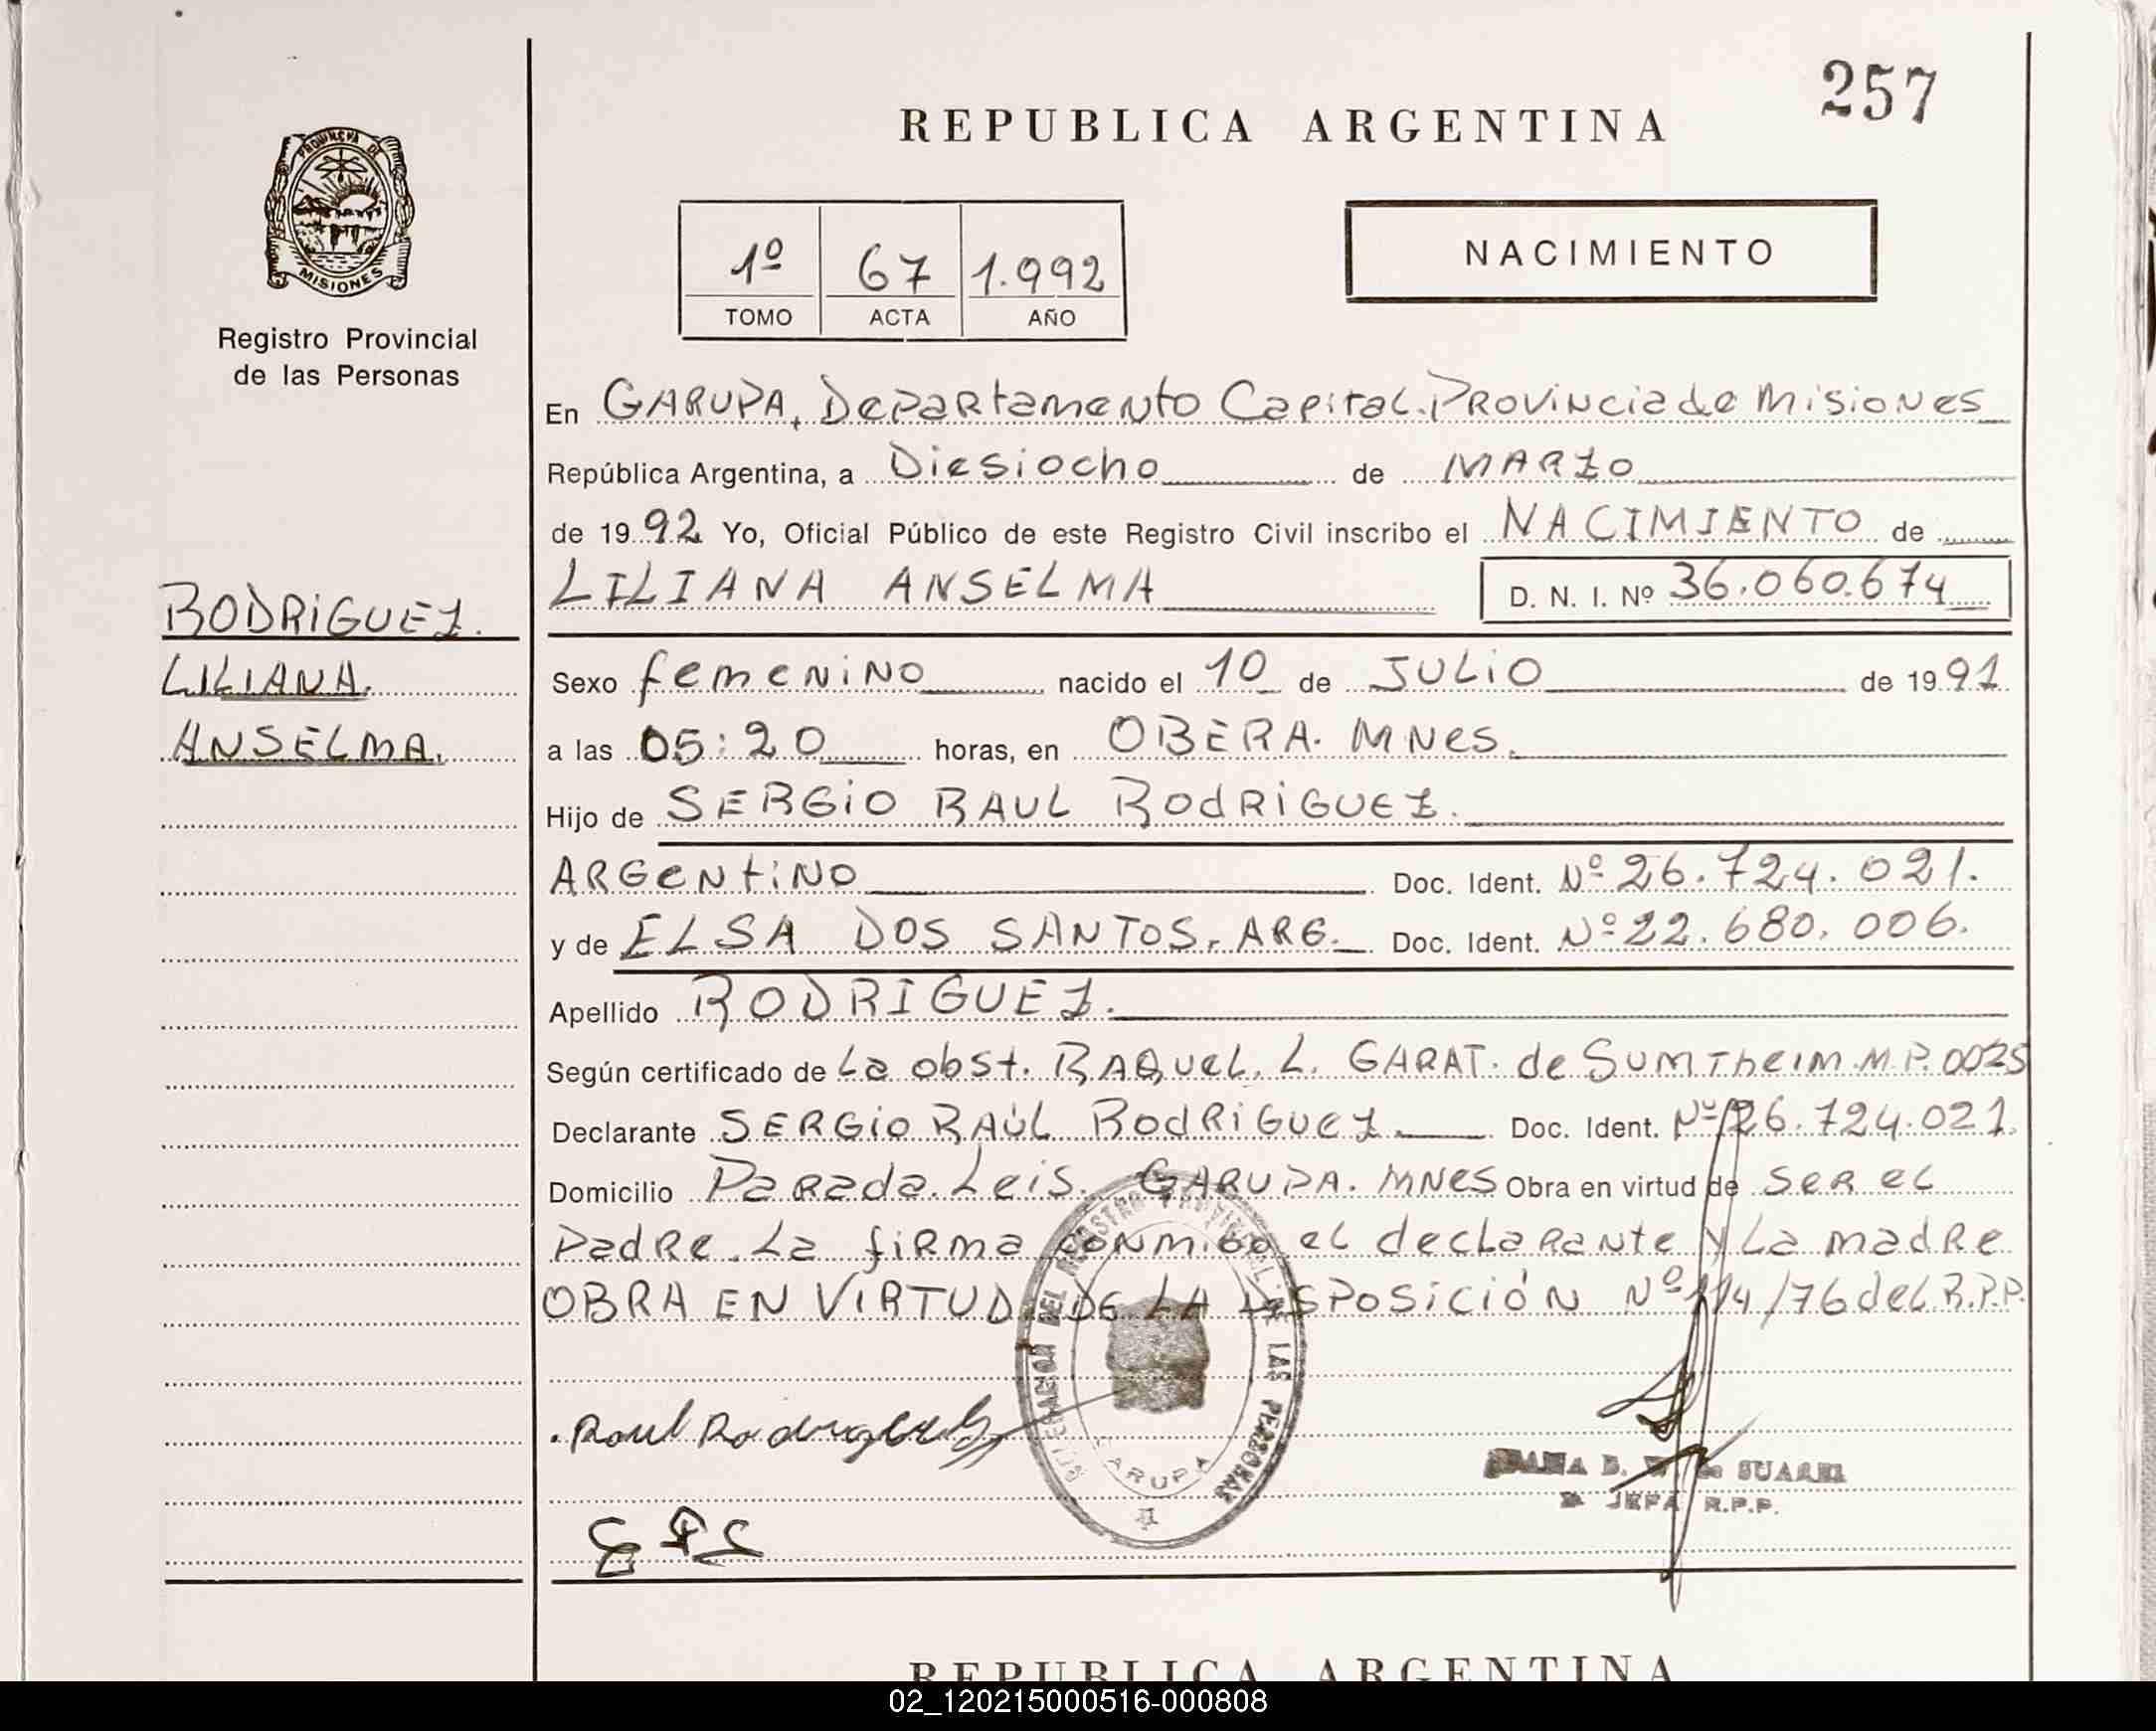 257
REPUBLICA ARGENTINA
PROVINCIA DE
MISIONES
Registro Provincial
de las Personas
1º 67 1.992
TOMO ACTA AÑO
NACIMIENTO
En GARUPA, Departamento Capital. Provincia de Misiones
República Argentina, a Diesiocho de MARZO
de 1992 Yo, Oficial Público de este Registro Civil inscribo el NACIMIENTO de
LILIANA ANSELMA D. N. I. Nº 36.060.674
RODRIGUEZ.
LILIANA.
ANSELMA.
Sexo femenino nacido el 10 de JULIO de 1991
a las 05:20 horas, en OBERA. MNes.
Hijo de SERGIO RAUL RodRiGUEZ.
ARGentiNO Doc. Ident. Nº 26.724.021.
y de ELSA DOS SANTOS. ARG. Doc. Ident. Nº 22.680.006.
Apellido RODRIGUEZ.
Según certificado de La obst. RAQUEL. L. GARAT. de SUMTheIM. M.P. 0025
Declarante SERGIO RAÚL RodRiGUEZ Doc. Ident. Nº 26.724.021.
Domicilio Parada. Leis. GARUPA. MNES Obra en virtud de ser el
Padre. La firma conmigo el declarante y La madre
OBRA EN VIRTUD DE LA DISPOSICIÓN Nº 114/76 del R.P.P.
DEL REGISTRO PROVINCIAL DE LAS PERSONAS
GARUPA
Raul Rodriguez
SUAREZ
JEFA R.P.P.
REPUBLICA ARGENTINA
02_120215000516-000808